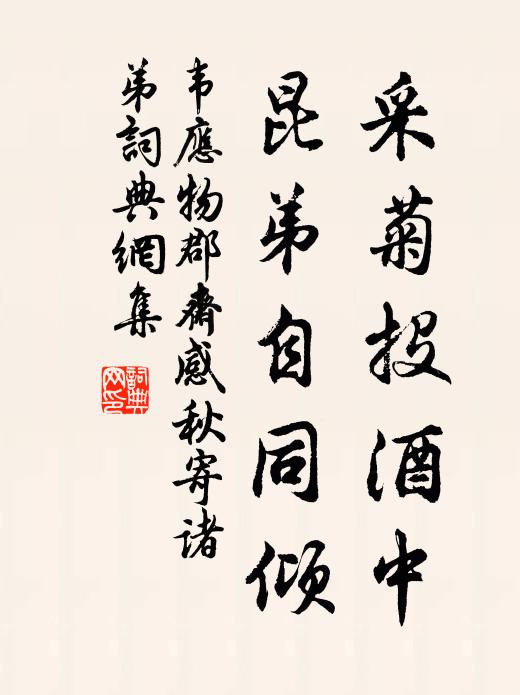 采菊投酒中
昆弟自同倾
韦應物郡齋感秋寄诸
弟詞典網集
詞典網印